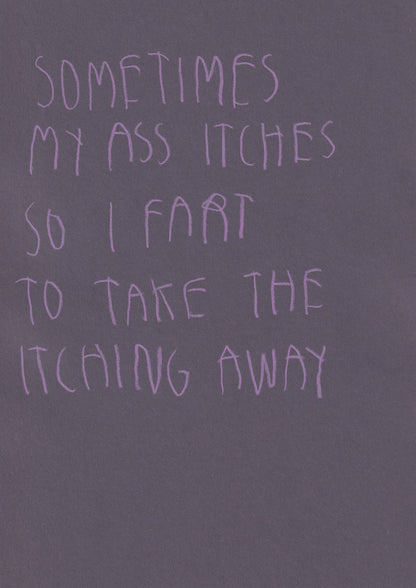 SOMETIMES
MY ASS ITCHES
SO I FART
TO TAKE THE
ITCHING AWAY